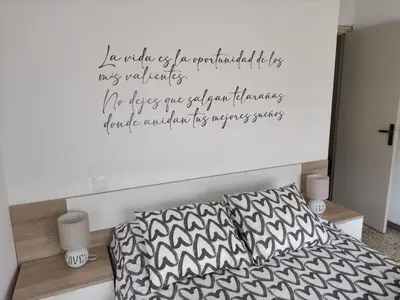 La vida es la oportunidad de los
más valientes.
No dejes que salgan telarañas
donde anidan tus mejores sueños